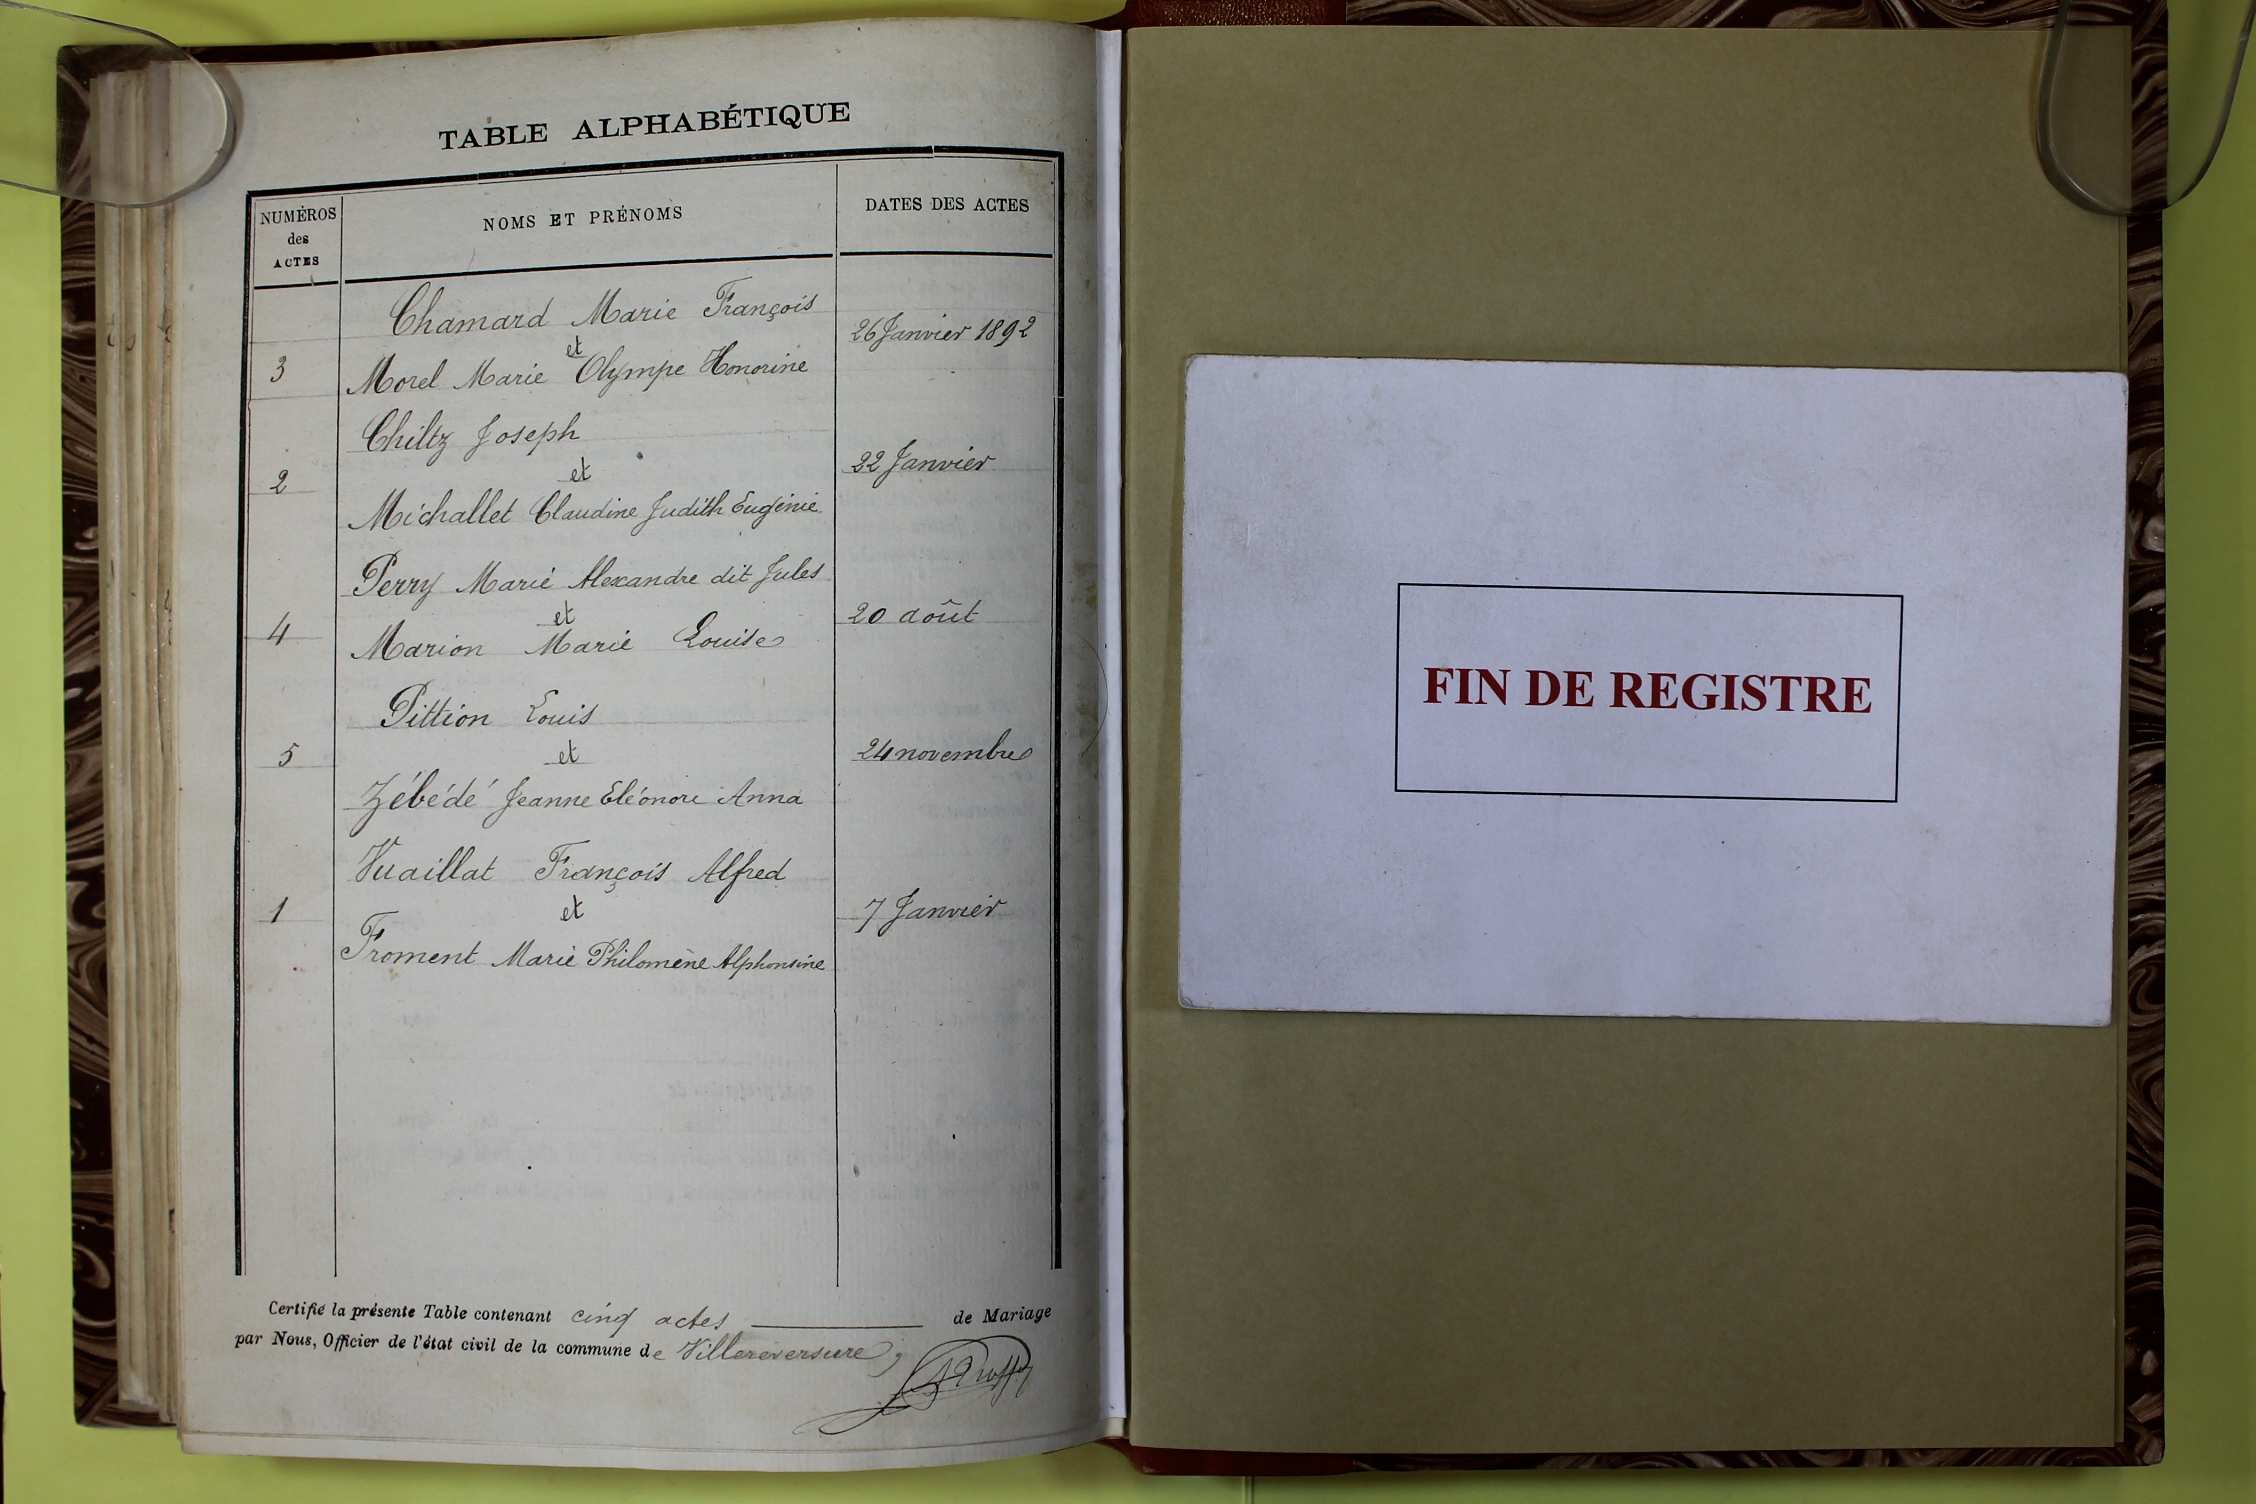 TABLE ALPHABÉTIQUE
NUMÉROS
des
ACTES
NOMS ET PRÉNOMS
DATES DES ACTES
Chamard Marie François
et
26 Janvier 1892
3
Morel Marie Olympe Honorine
Chiltz Joseph
et
22 Janvier
2
Michallet Claudine Judith Eugénie
Perry Marie Alexandre dit Jules
et
20 août
4
Marion Marie Louise
Pittion Louis
5
et
24 novembre
Zébédé Jeanne Eléonore Anna
Vuaillat François Alfred
1
et
7 Janvier
Froment Marie Philomène Alphonsine
Certifié la présente Table contenant cinq actes de Mariage
par Nous, Officier de l'état civil de la commune de Villereversure,
FIN DE REGISTRE